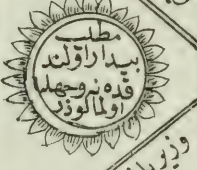 مطلب
بیدار اولند
قده نه وجهله
اولمالودر